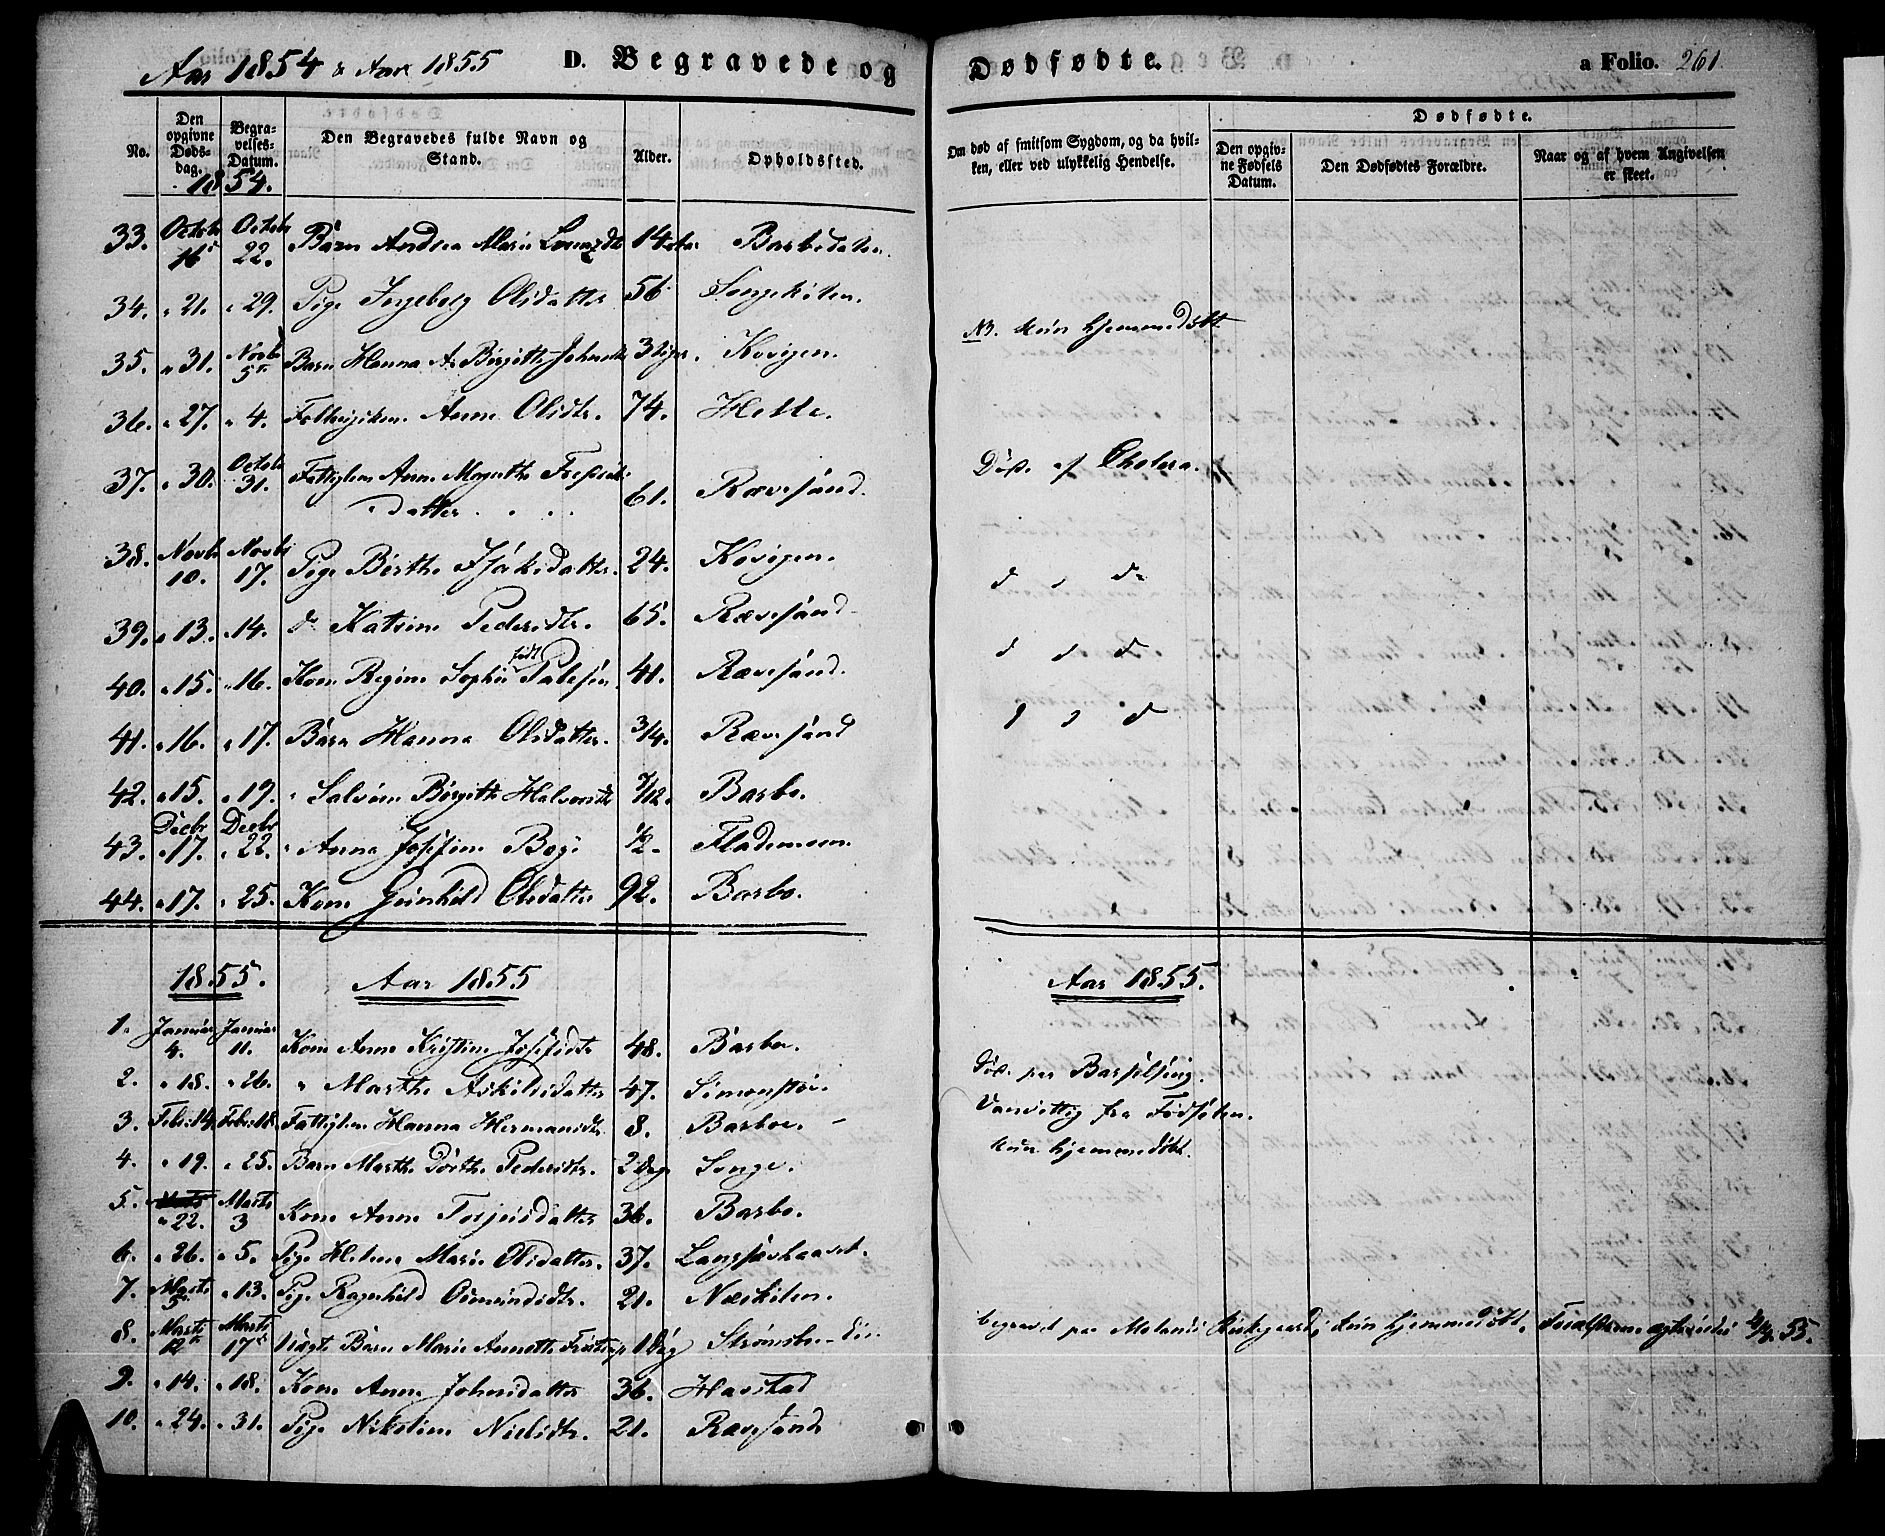 Aar 1854 & Aar 1855 D. Begravede og Dødfødte. a Folio. 261
No. Den opgivne Døds-dag. Begra-velses-Datum. Den Begravedes fulde Navn og Stand. Alder. Opholdssted. Om død af smitsom Sygdom, og da hvil-ken, eller ved ulykkelig Hendelse. Dødfødte.
Den opgiv-ne Fødsels Datum. Den Dødfødtes Forældre. Naar og af hvem Angivelsen er skeet.
1854.
33. Octobr 16 Octobr 22. Barn Andrea Marie 14 Barbodalen.
34. " 21. " 29. Pige Ingeborg Olsdatter 56 Songekilen.
35. " 31. Novbr 5 Barn Hanna A. Birgitte Johnsdtr 3 Kovigen. NB. kun hjemmedøbt
36. " 27. " 4. Anne Olsdtr. 74. Helle.
37. " 30. Octobr 31. Fattiglem Anne Margrethe datter 61. Rævesand. Død af Cholera.
38. Novbr 10. Novbr 17. Pige Berthe datter. 24. Kovigen. d " do
39. " 13. " 14. do Katrine Pedersdtr. 65. Rævesand. d d d
40. " 15. " 16. Kone Regine Sophie født 41. Rævesand. d d d
41. " 16. " 17. Barn Hanna Olsdatter. 3/4. Rævesand
42. " 15. " 19. " Birgitte Halvorsdtr /12. Barbo.
43. Decbr " 17. Decbr " 22. " Anna Josefine Boye 1/2 Flademoen.
44. " 17. " 25. Kone Gunhild Olsdatter 92. Barbo.
1855. Aar 1855 Aar 1855.
1. Januar 4. Januar 11. Kone Anne Kristine 48. Barbo.
2. " 18. " 26. " Marthe Askildsdatter 47. Død paa Barselseng.
3. Febr: 14 Febr: 18. Fattiglem Hanna Hermansdtr 8. Barboe. Vanvittig fra Fødselen.
4. " 19. " 25. Barn Marthe Dorthe Pedersdtr. 2 Dag Songe. kun hjemmedøbt.
5. " 22. Marts 3 Kone Anne Terjesdatter 36. Barbo.
6. " 26. " 5. Pige Helene Marie Olsdatter. 37. Langsævhaavet.
7. Marts 5 " 13. Pige Ragnhild 21. Næskilen.
8. Marts 12 Marts 17 Barn Marie Annette 1 Dag Strømsbo begravet paa Molands Kirkegaard, kun hjemmedøbt, 55.
9. " 14. " 18. Kone Anne Johnsdatter 36. Havstad
10. " 24. " 31. Pige Nikoline Nielsdtr. 21. Rævesand